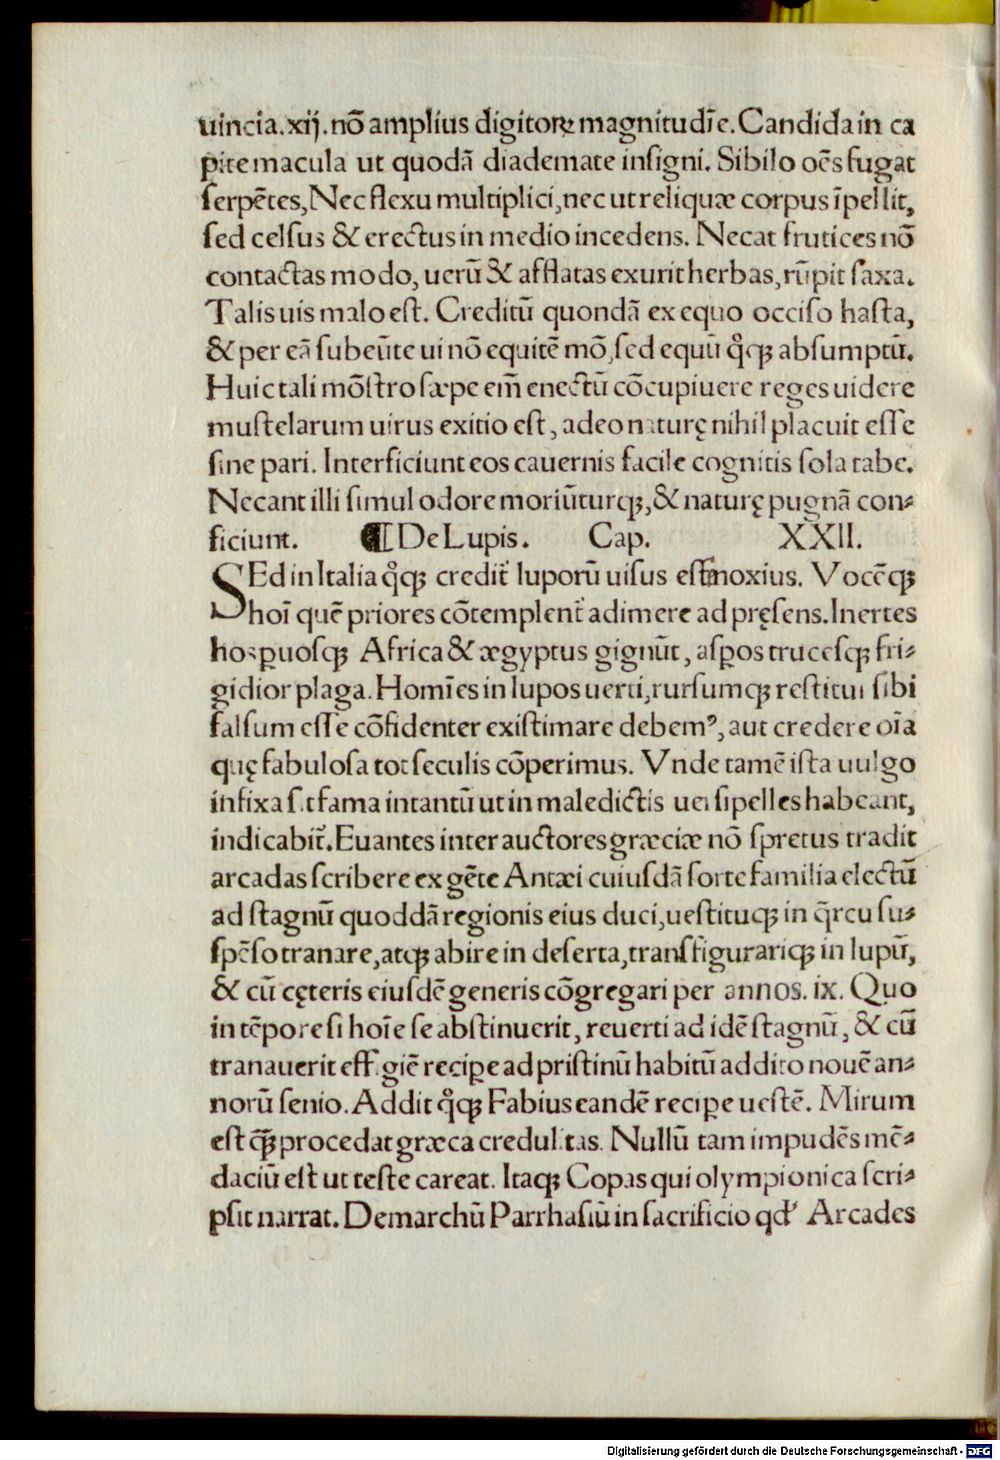 uincia.xij.nõ amplius digitoꝝ magnitudĩe. Candida in ca
pite macula ut quodã diademate insigni. Sibilo oẽs fugat
ſerpẽtes, Nec flexu multiplici, nec ut reliquæ corpus ĩpellit,
ſed celſus & erectus in medio incedens. Necat frutices nõ
contactas modo, uerũ & afflatas exurit herbas, rũpit ſaxa.
Talis uis malo eſt. Creditũ quondã ex equo occiſo haſta,
& per eã ſubeũte ui nõ equitẽ mõ, ſed equũ q̊ꝗ abſumptũ.
Huic tali mõſtro ſæpe em̃ enectũ cõcupiuere reges uidere
muſtelarum uirus exitio eſt, adeo naturę nihil placuit eſſe
ſine pari. Interficiunt eos cauernis facile cognitis ſola tabe.
Necant illi ſimul odore moriũturqꝫ, & naturę pugnã con⸗
ficiunt. ¶ De Lupis. Cap. XXII.
SEd in Italia q̊qꝫ credit̃ luporũ uiſus eſſe noxius. Vocẽqꝫ
hoĩ quẽ priores cõtemplent̃ adimere ad pręſens. Inertes
hos ꝑuoſqꝫ Africa & ægyptus gignũt, aſꝑos truceſqꝫ fri⸗
gidior plaga. Homĩes in lupos uerti, rurſumqꝫ reſtitui ſibi
falſum eſſe cõfidenter exiſtimare debemꝰ, aut credere oĩa
quę fabuloſa tot ſeculis cõperimus. Vnde tamẽ iſta uulgo
infixa ſit fama intantũ ut in maledictis uerſipelles habeant,
indicabit̃. Euantes inter auctores græciæ nõ ſpretus tradit
arcadas ſcribere ex gẽte Antæi cuiuſdã ſorte familia electũ
ad ſtagnũ quoddã regionis eius duci, ueſtituqꝫ in q̃rcu ſu⸗
ſpẽſo tranare, atqꝫ abire in deſerta, transfigurariqꝫ in lupũ,
& cũ cęteris eiuſdẽ generis cõgregari per annos. ix. Quo
in tẽpore ſi hoĩe ſe abſtinuerit, reuerti ad idẽ ſtagnũ, & cũ
tranauerit effigiẽ reciꝑe ad priſtinũ habitũ addito nouẽ an⸗
norũ ſenio. Addit q̊qꝫ Fabius eandẽ reciꝑe ueſtẽ. Mirum
eſt q̃ꝫ procedat græca credulitas. Nullũ tam impudẽs mẽ⸗
daciũ eſt ut teſte careat. Itaqꝫ Copas qui olympionica ſcri⸗
pſit narrat. Demarchũ Parrhaſiũ in ſacrificio qd' Arcades
Digitalisierung gefördert durch die Deutsche Forschungsgemeinschaft - DFG